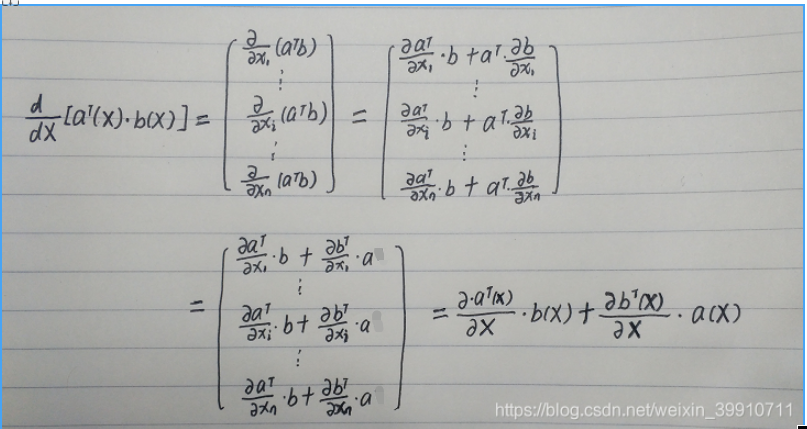 d/dX [aᵀ(X)·b(X)] = ( ∂/∂x₁ (aᵀb) ⋮ ∂/∂xᵢ (aᵀb) ⋮ ∂/∂xₙ (aᵀb) ) = ( ∂aᵀ/∂x₁ ·b + aᵀ·∂b/∂x₁ ⋮ ∂aᵀ/∂xᵢ ·b + aᵀ·∂b/∂xᵢ ⋮ ∂aᵀ/∂xₙ ·b + aᵀ·∂b/∂xₙ )
= ( ∂aᵀ/∂x₁ ·b + ∂bᵀ/∂x₁ ·a ⋮ ∂aᵀ/∂xᵢ ·b + ∂bᵀ/∂xᵢ ·a ⋮ ∂aᵀ/∂xₙ ·b + ∂bᵀ/∂xₙ ·a ) = ∂·aᵀ(X)/∂X ·b(X) + ∂bᵀ(X)/∂X · a(X)
https://blog.csdn.net/weixin_39910711